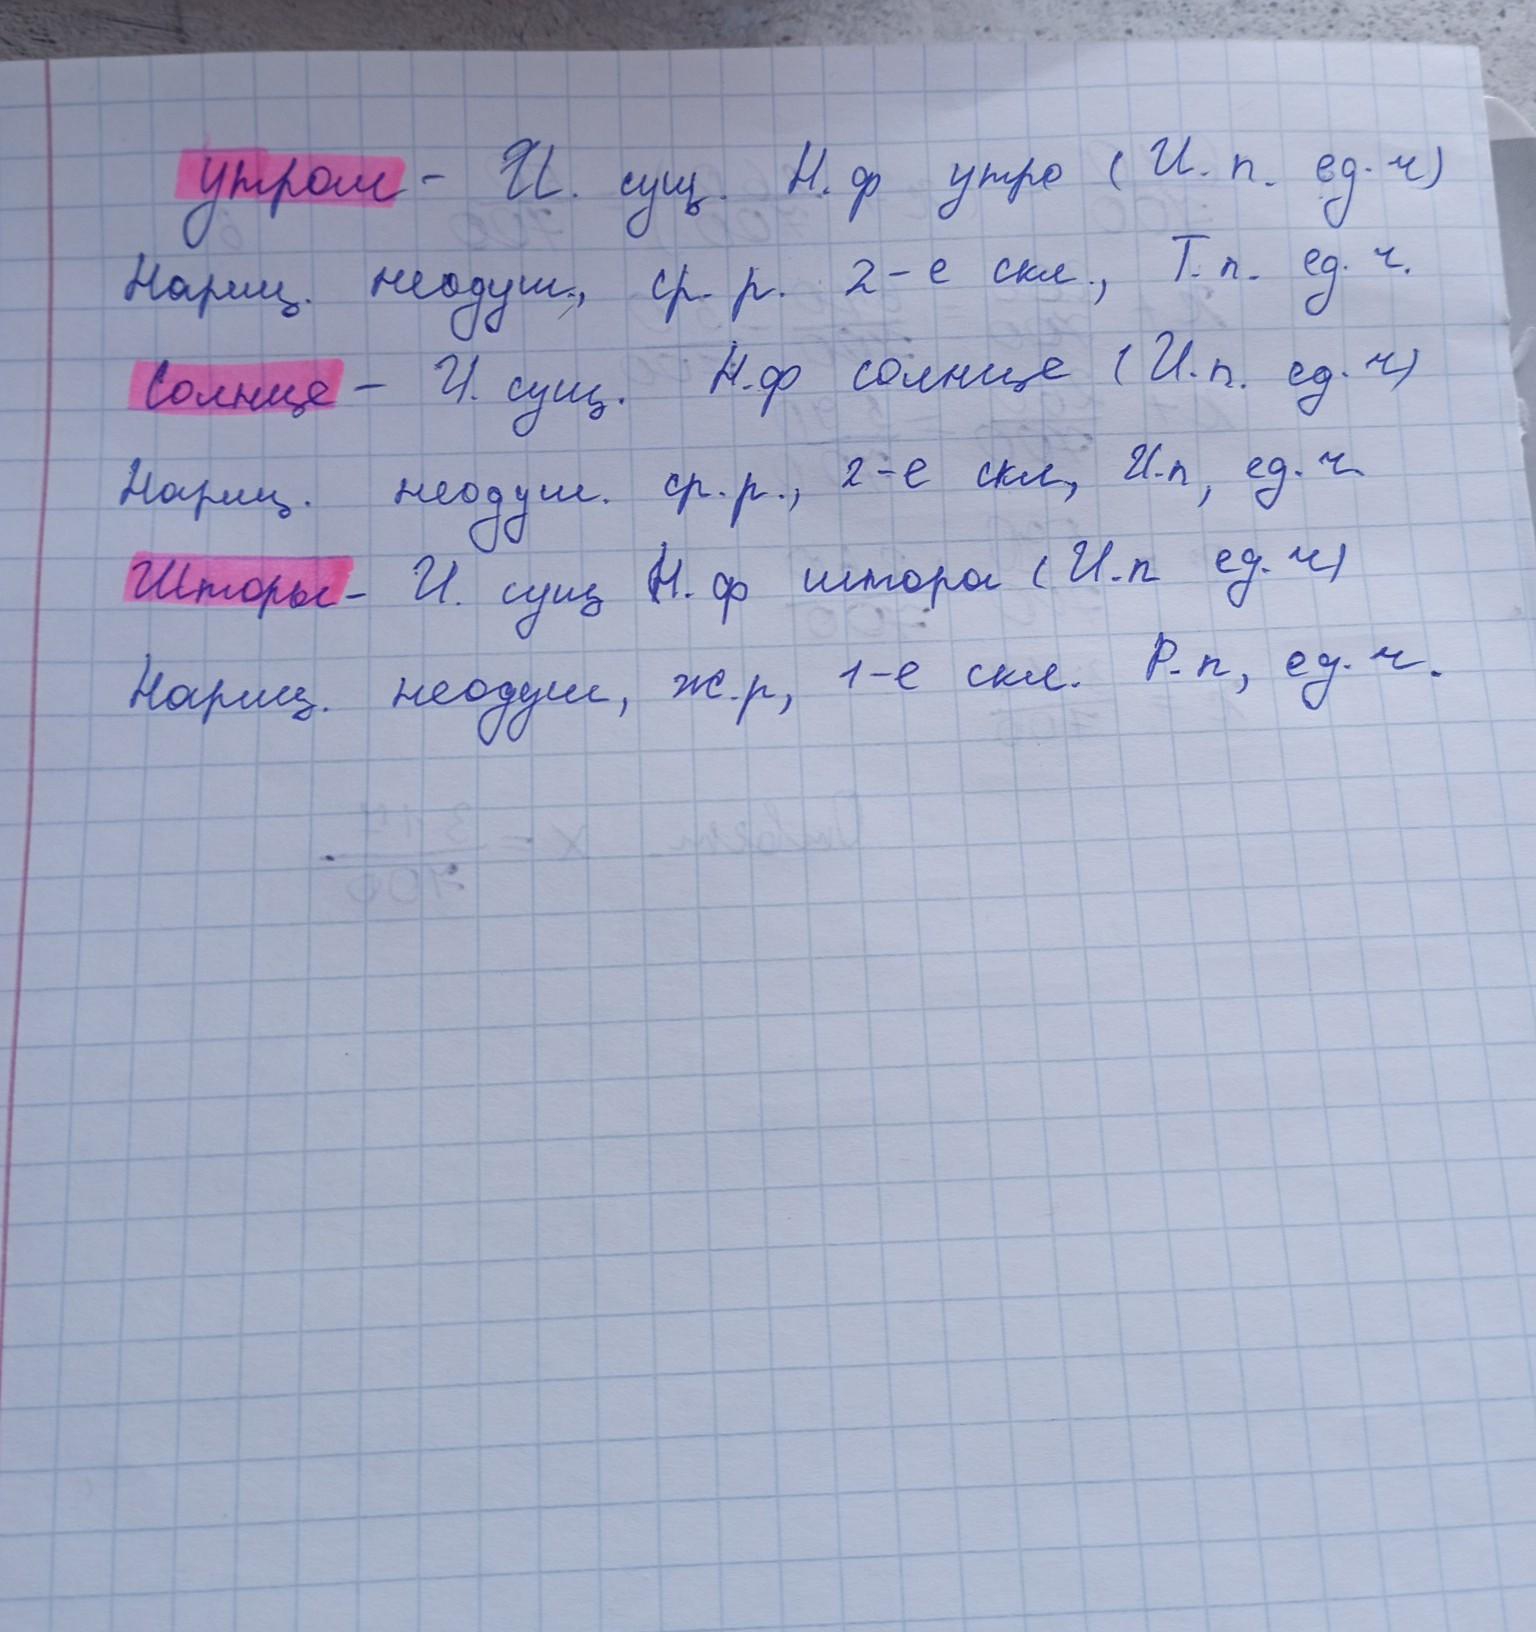 утром - И. сущ. Н.ф утро (И.п. ед.ч)
Нариц. неодуш., ср.р. 2-е скл., Т.п. ед.ч.
Солнце - И. сущ. Н.ф солнце (И.п. ед.ч)
Нариц. неодуш. ср.р., 2-е скл, И.п, ед.ч.
Шторы - И. сущ Н.ф штора (И.п ед.ч)
Нариц. неодуш, ж.р, 1-е скл. Р.п, ед.ч.